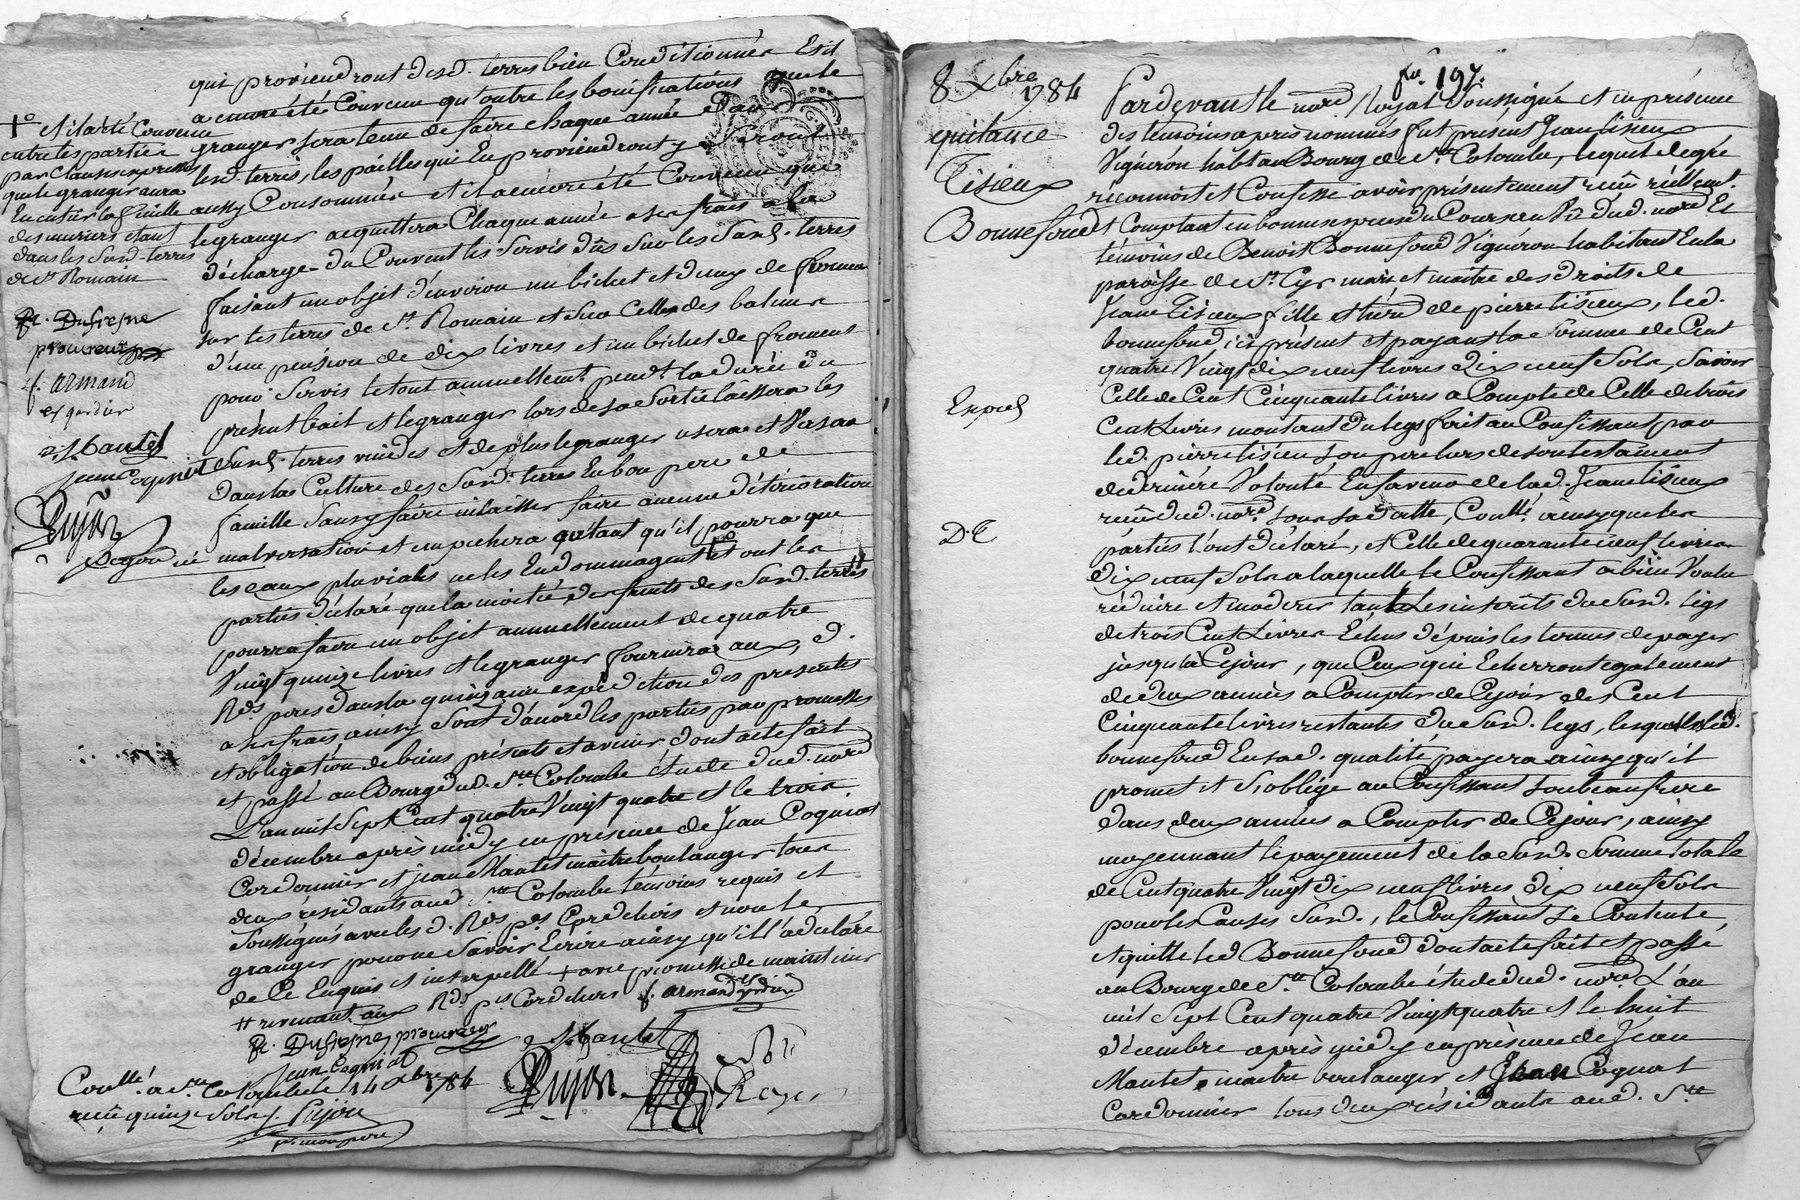 qui proviendront desd. terres bien Conditionnés Et il
a encore été Convenu qu'outre les bonifications que le
granger sera tenu de faire chaque année
lesd. terres, les pailles qui En proviendront y seront
aussy Consommées et il a encore été Convenu que
le granger acquittera Chaque année a ses frais a la
décharge du Couvent les Servis dûs Sur les Susd. terres
faisant un objet d'environ un bichet et deux de froment
sur les terres de St. Romain et Sur Celles des balmes
d'une pension de dix livres et un bichet de froment
pour Servis le tout annuellemt. pendt. la durée du
présent bail et le granger lors de sa Sortie laissera les
Susd. terres vuides et de plus le granger usera et Versera
dans la Culture des Susd. terres En bon pere de
famille Sans y faire ni laisser faire aucune déterioration
malversation et empechera autant qu'il pourra que
les eaux pluviales ne les Endommagent et ont les
parties déclaré que la moitié des fruits des Susd. terres
pourra faire un objet annuellement de quatre
Vingt quinze livres et le granger fournira aux d.
Rds. peres dans la quinzaine expédition des presentes
a ses frais ainsy Sont d'accord les parties par promesses
et obligation de biens présents et avenir dont acte fait
et passé au Bourg dud. Ste. Colombe étude dud. nore
L'an mil Sept Cent quatre Vingt quatre et le trois
décembre après midy en présence de Jean Cogniat
Cordonnier et jean Mantel maitre boulanger tous
deux résidants aud. Ste. Colombe témoins requis et
Soussignés avec les d. Rds. ps. Cordeliers et non le
granger pour ne Savoir Ecrire ainsy qu'il l'a déclaré
de Ce Enquis et interpellé + avec promesse de maintenir
++ revenant aux Rds. ps. Cordeliers f. armand gardien
fr. Dufresne procureur
J. Mantel
Jean Cogniat
Pujon
Coullé. a Ste. Colombe le 14 xbre. 1784
reçu quinze Sols J. Pujon
1o et il a été Convenu
entre les parties
par Clause expresse
que le granger aura
En entier la feuille
des muriers etant
dans les Susd. terres
de St. Romain
fr. Dufresne
procureur
f. armand
gardien
J. Mantel
jean Cogniat
Pujon
8 xbre 1784
quitance
Tisieux
Bonnefond
Exped
D. C
fo. 197.
Pardevant le nore Royal Soussigné et en présence
des temoins après nommés fut présent Jean tisieux
Vigneron habt. au Bourg de Ste. Colombe, lequel de gré
réconnoit et Confesse avoir présentement reçu réellemt.
et Comptant en bonnes especes du Cours au Vû dud. nore Et
témoins de Benoit Bonnefond Vigneron habitant En la
paroisse de St. Cyr mari et maitre des droits de
Jeane Tisieux fille et hérd. de pierre tisieux, led.
bonnefond ici présent et payant la Somme de Cent
quatre Vingt dix neuf livres dix neuf Sols, Savoir
Celle de Cent Cinquante livres a Compte de Celle de trois
Cent Livres montant du legs fait au Confessant par
led. pierre tisieu Son pere lors de son testament
de derniére Volonté En faveur de lad. Jeane tisieux
reçu dud. nore. sous sa datte, Coullé. ainsy que les
parties l'ont déclaré, et Celle de quarante neuf livres
dix neuf Sols a laquelle le Confessant a bien Voulu
réduire et moderer tant les interêts du Susd. legs
de trois Cent Livres Echus dépuis les termes de payer
jusqu'à Cejour, que Ceux qui Echerront egalement
de deux années a Compter de Cejour des Cent
Cinquante livres restantes du Susd. legs, lesquels led.
bonnefond En sad. qualité payera ainsy qu'il
promet et S'oblige au Confessant Son beaufrere
dans deux années a Compter de Cejour, ainsy
moyennant le payement de la Susd. Somme totale
de Cent quatre Vingt dix neuf livres dix neuf Sols
pour les Causes Susd., le Confessant Se Contente
et quitte led Bonnefond dont acte fait et passé
au Bourg de Ste. Colombe étude dud. nore. L'an
mil Sept Cent quatre Vingt quatre et le huit
décembre après midy en présence de Jean
Mantel, maitre boulanger et Jean Cogniat
Cordonnier tous deux résidants aud. Ste.